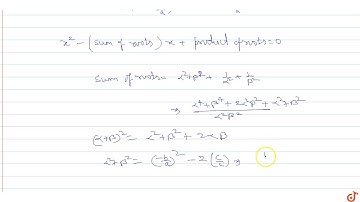 x² - (sum of roots) x + product of roots = 0
Sum of roots = α² + β² + 1/α² + 1/β²
⇒ (α⁴ + β⁴ + 2α²β² + α² + β²)/(α²β²)
(α+β)² = α² + β² + 2αβ
α² + β² = (-b/a)² - 2(c/a) ⇒